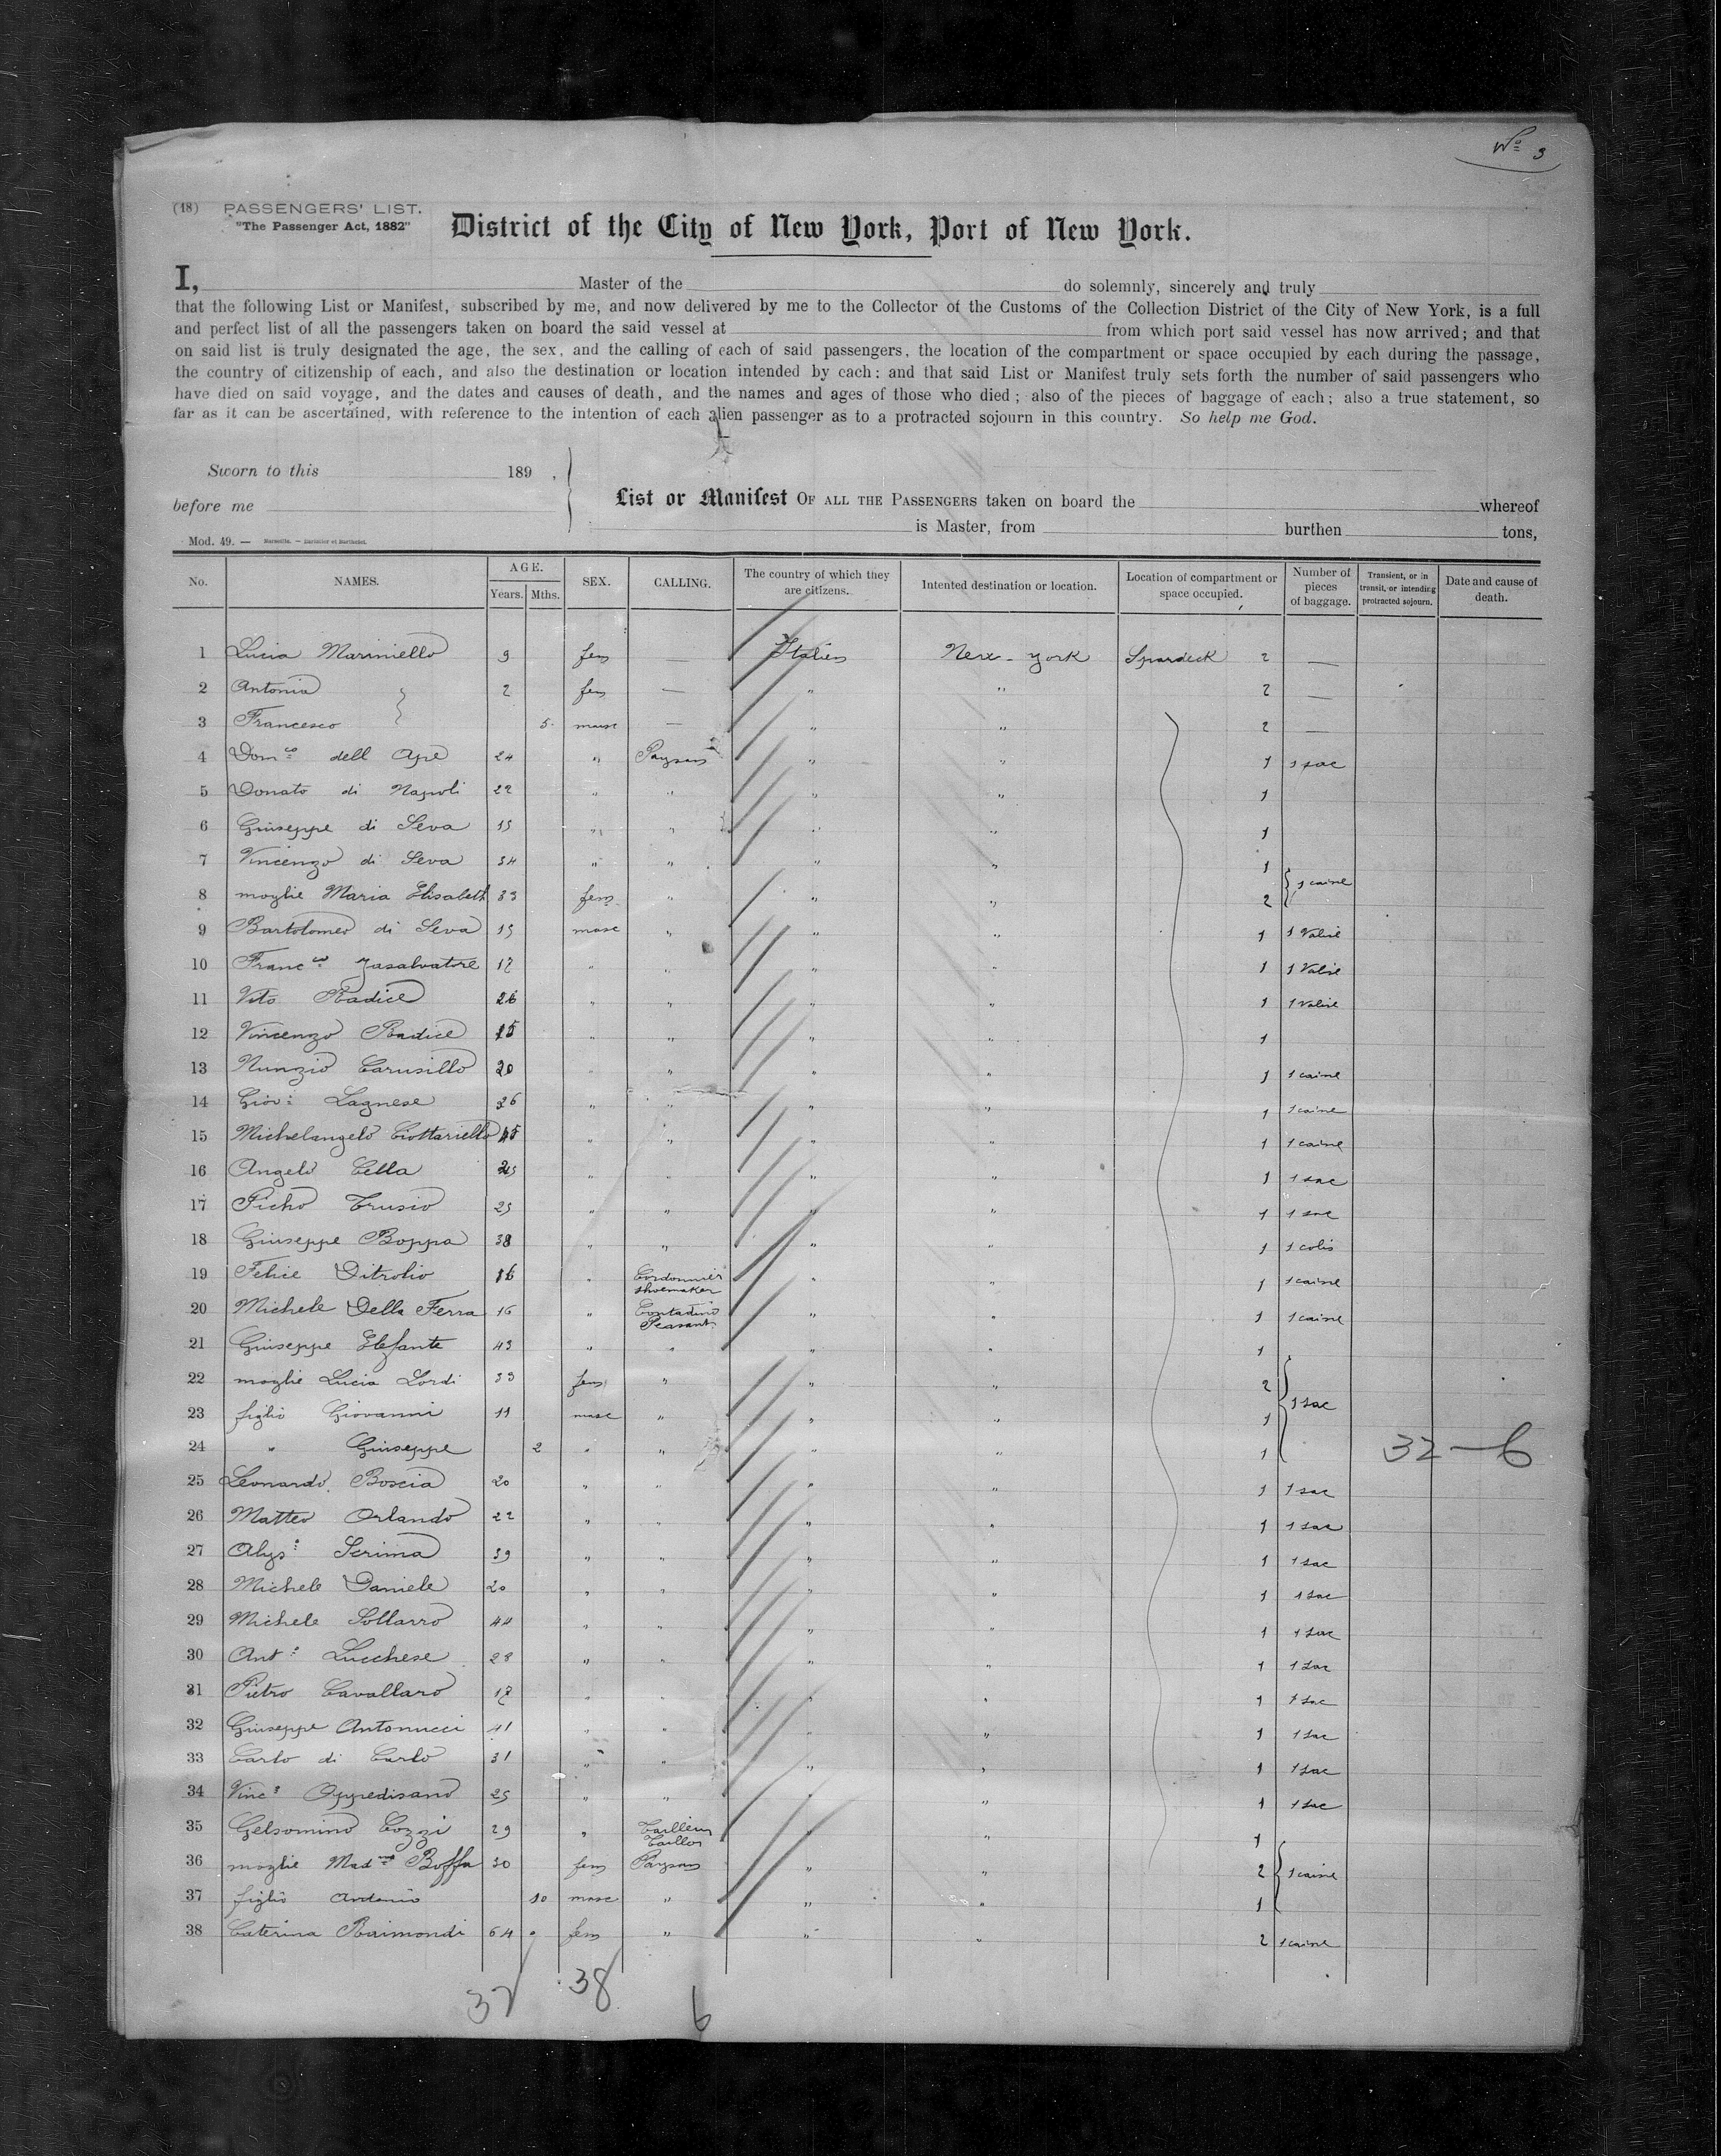 Nº 3
(18) PASSENGERS' LIST.
"The Passenger Act, 1882"
District of the City of New York, Port of New York.
I, Master of the do solemnly, sincerely and truly
that the following List or Manifest, subscribed by me, and now delivered by me to the Collector of the Customs of the Collection District of the City of New York, is a full
and perfect list of all the passengers taken on board the said vessel at from which port said vessel has now arrived; and that
on said list is truly designated the age, the sex, and the calling of each of said passengers, the location of the compartment or space occupied by each during the passage,
the country of citizenship of each, and also the destination or location intended by each: and that said List or Manifest truly sets forth the number of said passengers who
have died on said voyage, and the dates and causes of death, and the names and ages of those who died; also of the pieces of baggage of each; also a true statement, so
far as it can be ascertained, with reference to the intention of each alien passenger as to a protracted sojourn in this country. So help me God.
Sworn to this 189 ,
before me
List or Manifest OF ALL THE PASSENGERS taken on board the whereof
is Master, from burthen tons,
Mod. 49. — Marseille. — Barlatier et Barthelet.
No. NAMES. AGE. Years. Mths. SEX. CALLING. The country of which they are citizens. Intented destination or location. Location of compartment or space occupied. Number of pieces of baggage. Transient, or in transit, or intending protracted sojourn. Date and cause of death.
1 Lucia Mariniello 9 fem — Italien New-york Spardeck 2 —
2 Antonia 2 fem — " " 2 —
3 Francesco 5 masc — " " 2 —
4 Domco dell Ape 24 " Paysan " " 1 1 sac
5 Donato di Napoli 22 " " " " 1
6 Giuseppe di Seva 15 " " " " 1
7 Vincenzo di Seva 34 " " " " 1
8 moglie Maria Elisabeth 33 fem " " " 2 1 caisse
9 Bartolomeo di Seva 15 masc " " " 1 1 Valise
10 Francco Zasalvatore 17 " " " " 1 1 Valise
11 Vito Radice 26 " " " " 1 1 Valise
12 Vincenzo Radice 15 " " " " 1
13 Nunzio Carusillo 20 " " " " 1 1 caisse
14 Giovi Lagnese 26 " " " " 1 1 caisse
15 Michelangelo Ciottariello 45 " " " " 1 1 caisse
16 Angelo Cella 25 " " " " 1 1 sac
17 Picho Trusio 25 " " " " 1 1 sac
18 Giuseppe Boppa 38 " " " " 1 1 colis
19 Felice Ditrolio 16 " Cordonnier shoemaker " " 1 1 caisse
20 Michele Della Ferra 16 " Contadino Peasant " " 1 1 caisse
21 Giuseppe Elefante 43 " " " " 1
22 moglie Lucia Lordi 33 fem " " " 2
23 figlio Giovanni 11 masc " " " 1 1 sac
24 " Giuseppe 2 " " " " 1 32-6
25 Leonardo Boscia 20 " " " " 1 1 sac
26 Matteo Orlando 22 " " " " 1 1 sac
27 Alyso Serima 39 " " " " 1 1 sac
28 Michele Daniele 20 " " " " 1 1 sac
29 Michele Sollarro 44 " " " " 1 1 sac
30 Anto Lucchese 28 " " " " 1 1 sac
31 Pietro Cavallaro 17 " " " " 1 1 sac
32 Giuseppe Antonucci 41 " " " " 1 1 sac
33 Carlo di Carlo 31 " " " " 1 1 sac
34 Vinco Oppedisano 25 " " " " 1 1 sac
35 Gelsomino Cozzi 29 " Tailleur Taillor " " 1
36 moglie Madna Boffa 30 fem Paysan " " 2 1 caisse
37 figlio Antonio 10 masc " " " 1
38 Caterina Raimondi 64 fem " " " 2 1 caisse
32 38 6